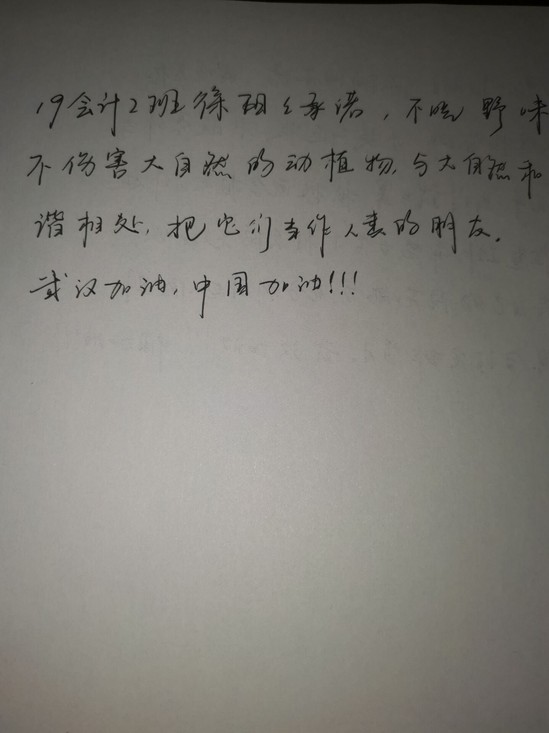 19会计2班徐承诺，不吃野味
不伤害大自然的动植物，与大自然和
谐相处，把它们当作人类的朋友.
武汉加油，中国加油!!!